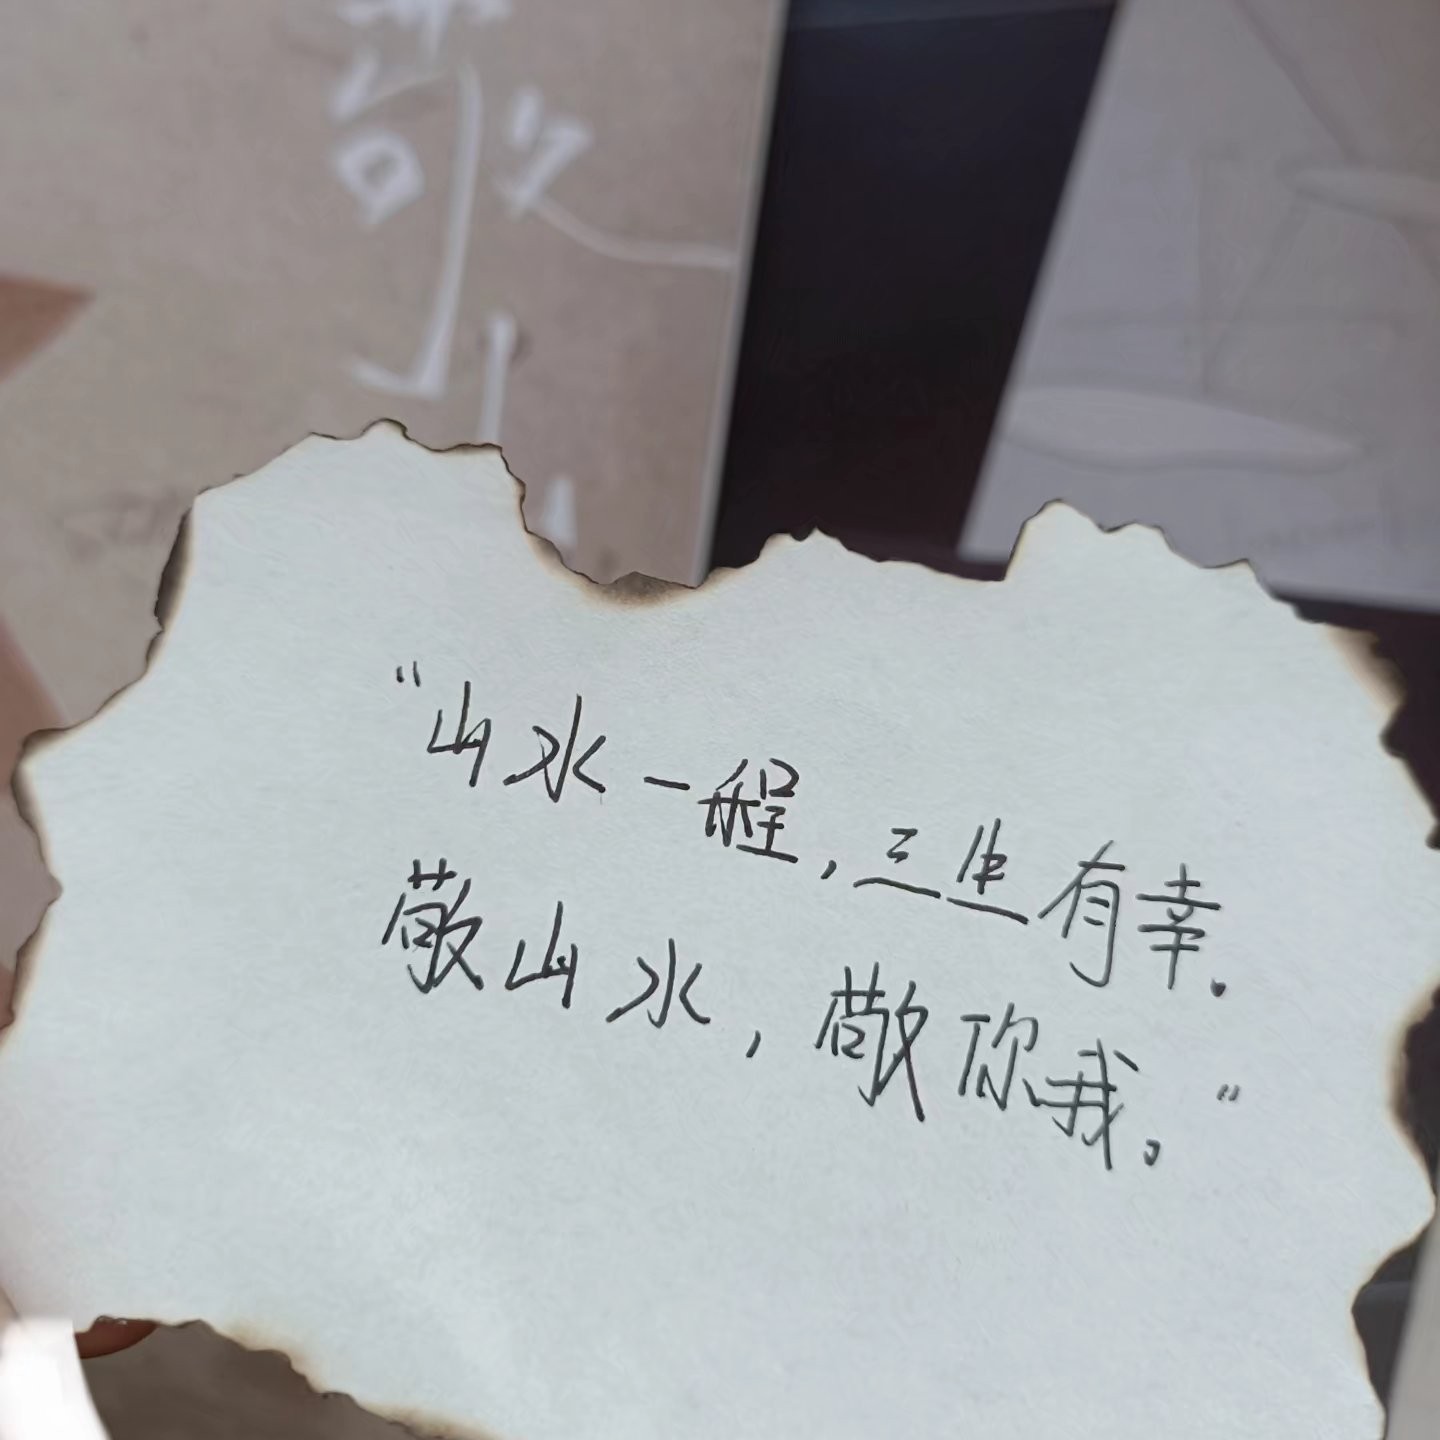 敬山
“山水一程，三生有幸。
敬山水，敬你我。”